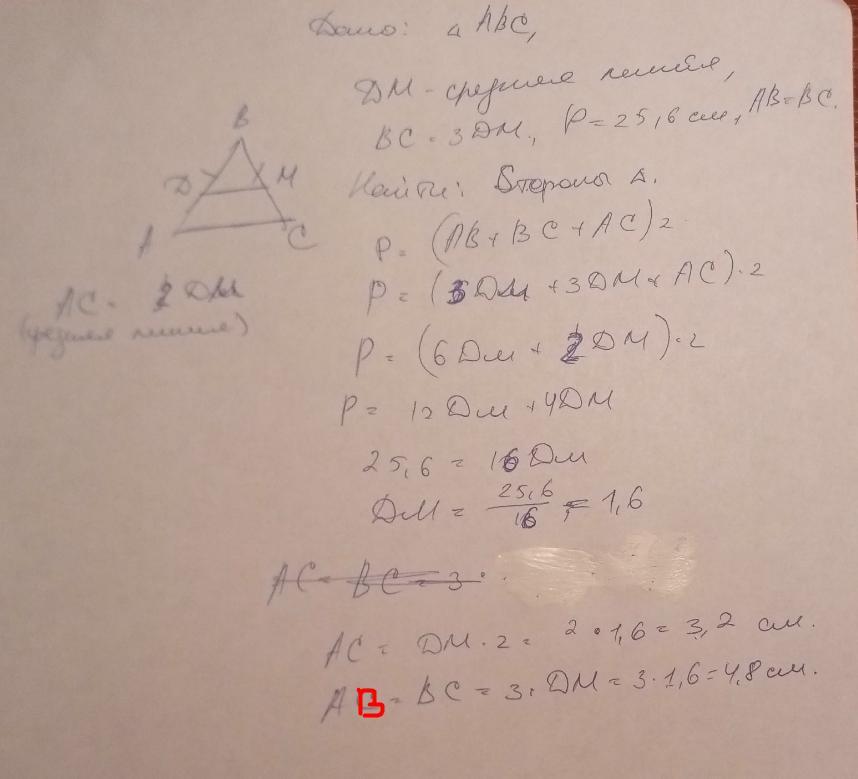 Дано: △ ABC,
DM - средняя линия,
BC = 3DM, P = 25,6 см, AB = BC.
Найти: Стороны △.
B
D M
A C
AC = 2 DM
(средняя линия)
P = (AB + BC + AC) 2
P = (3DM + 3DM + AC) · 2
P = (6DM + 2DM) · 2
P = 12DM + 4DM
25,6 = 16DM
DM = 25,6/16 = 1,6
AC = BC = 3 ·
AC = DM · 2 = 2 · 1,6 = 3,2 см.
AB = BC = 3 · DM = 3 · 1,6 = 4,8 см.